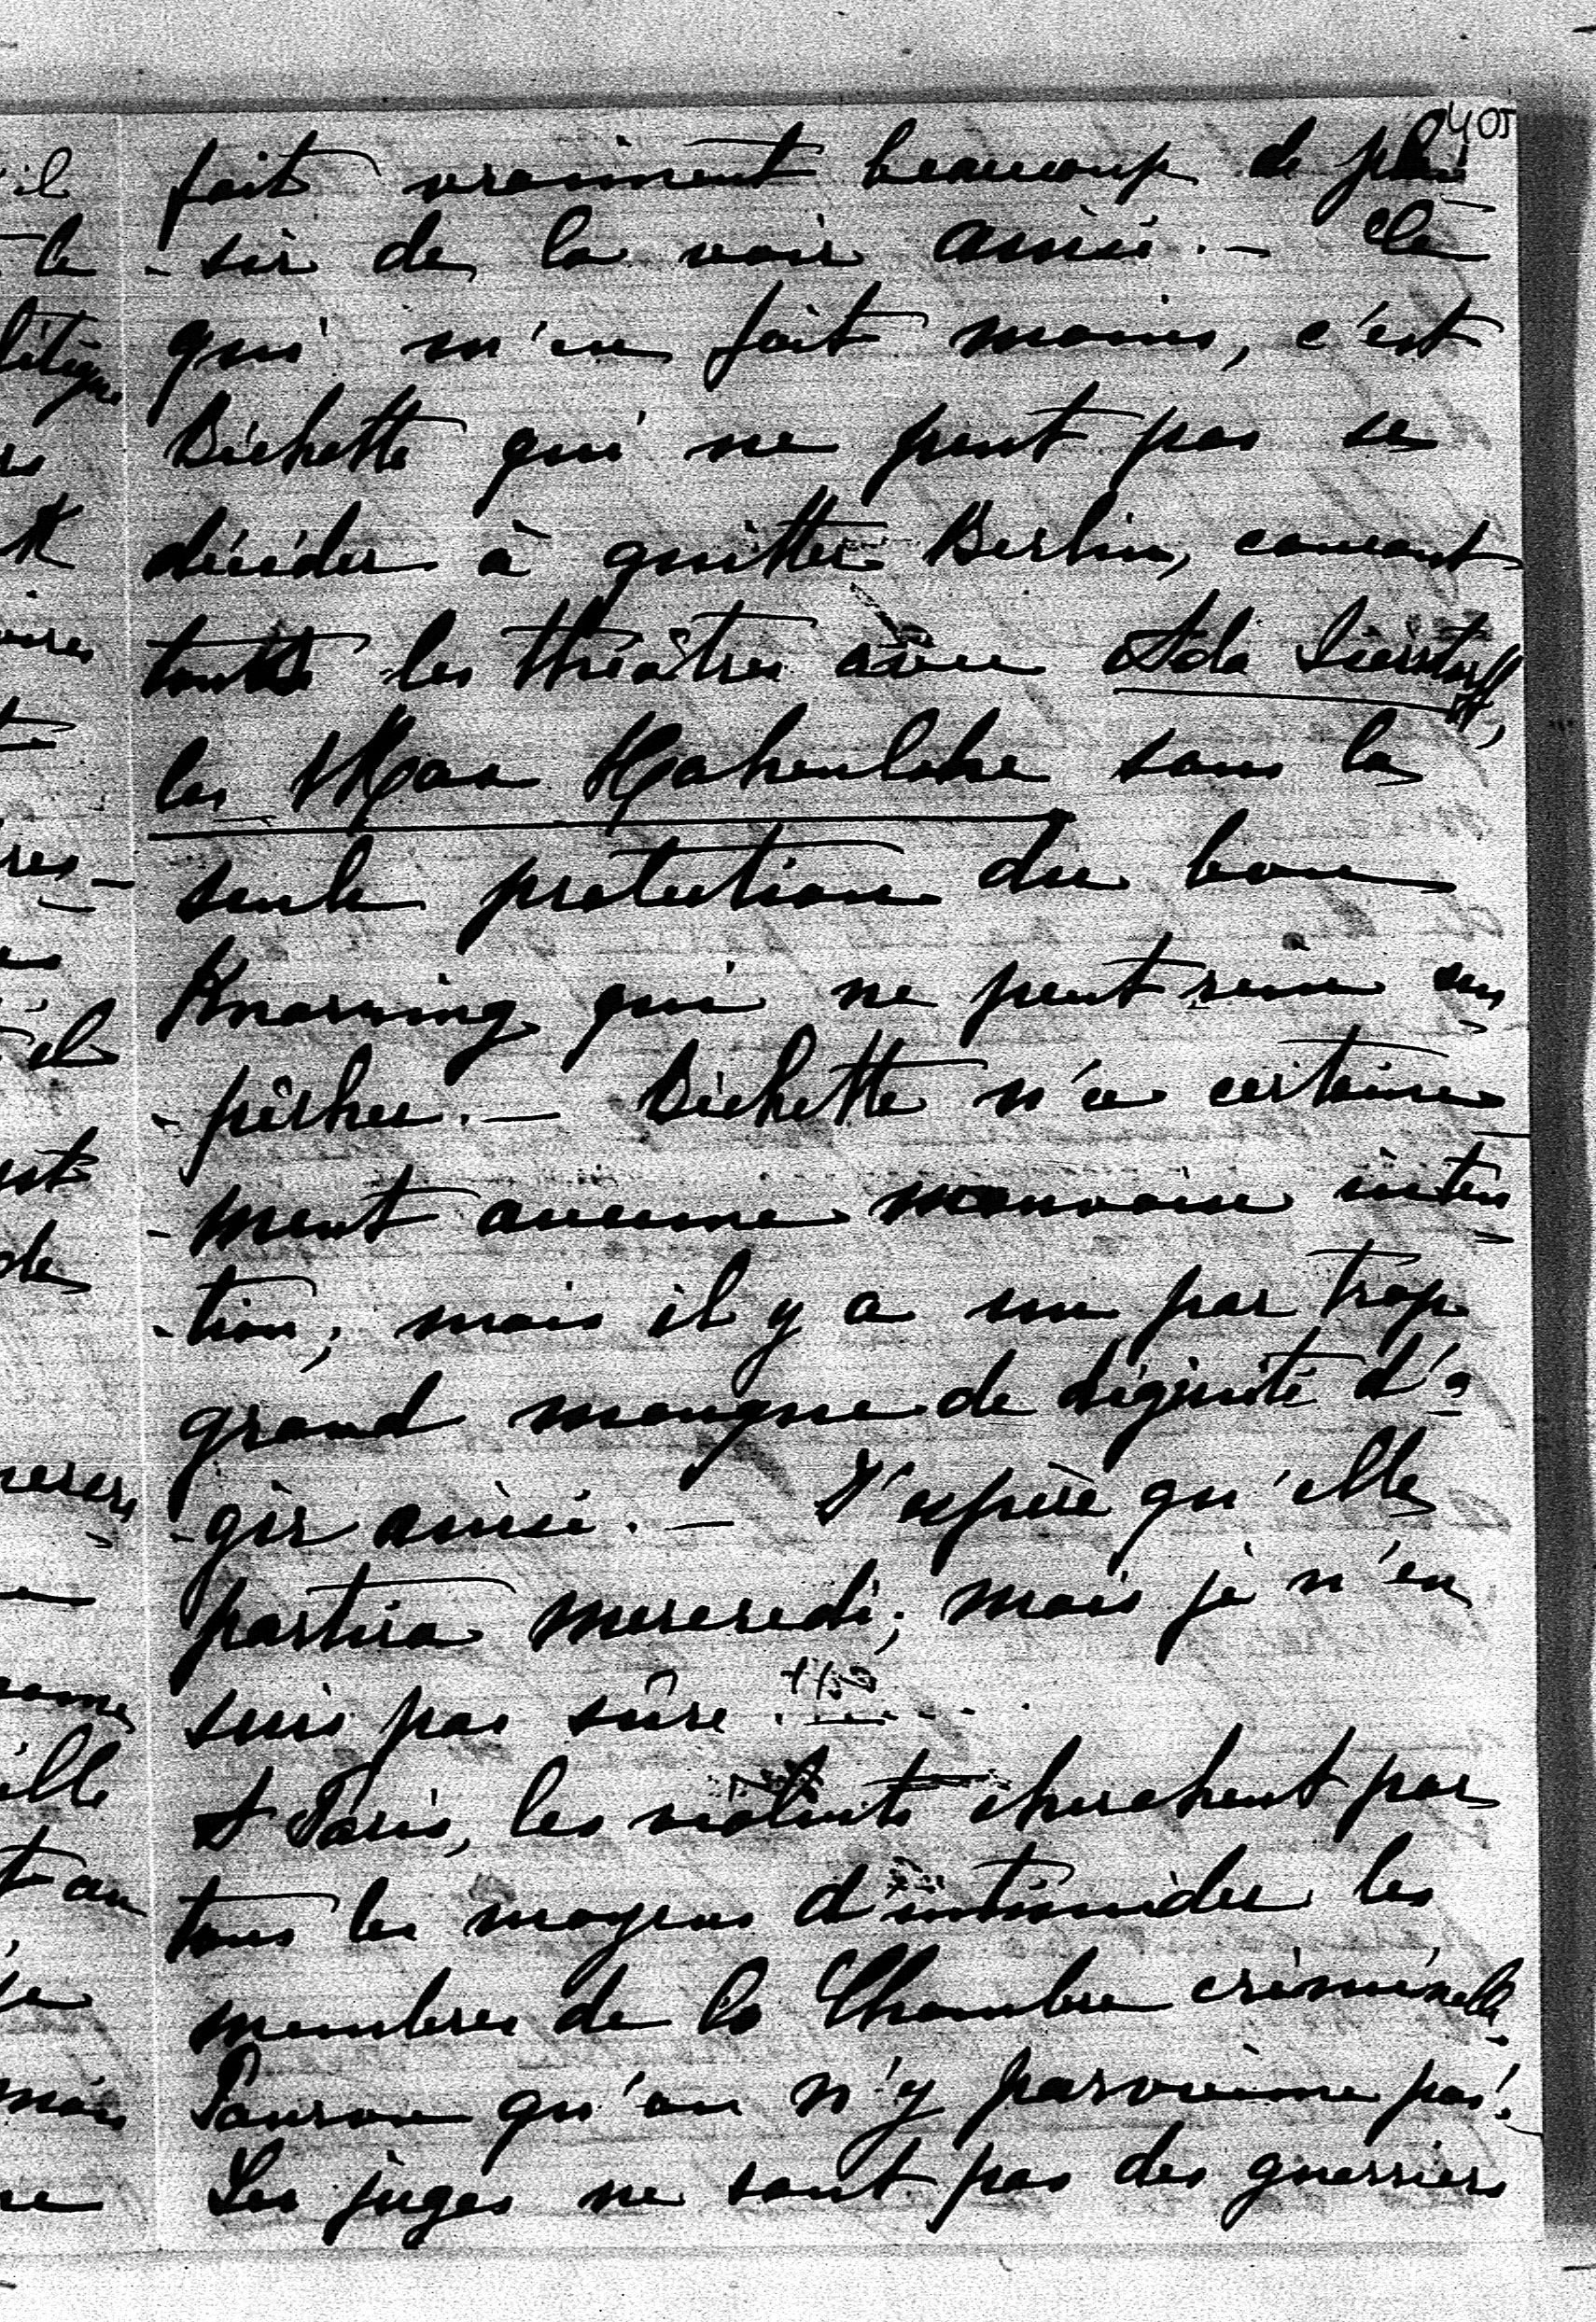 405
fait vraiment beaucoup de plai
-sir de la voir ainsi. — Ce
qui m'en fait moins, c'est
Bichette qui ne peut pas se
décider à quitter Berlin, courant
tous les théâtres avec Ada Sierstorff,
les Max Hohenlohe sous la
seule protection du bon
Knorring qui ne peut rien em
-pêcher. — Bichette n'a certaine
-ment aucune mauvaise inten
-tion, mais il y a un par trop
grand manque de dignité d'a
-gir ainsi. — J'espère qu'elle
partira mercredi, mais je n'en
suis pas sûre . . . . .
A Paris, les violents cherchent par
tous les moyens d'intimider les
membres de la Chambre criminelle.
Pourvu qu'on n'y parvienne pas!
Les juges ne sont pas des guerriers